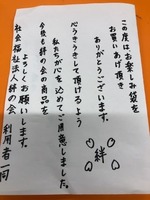 この度はお楽しみ袋を
お買いあげ頂き
ありがとうございます。
心うきうきして頂けるよう
私たちが心を込めてご用意しました。
今後も絆の会の商品を
よろしくお願いします。
社会福祉法人絆の会 利用者一同
絆